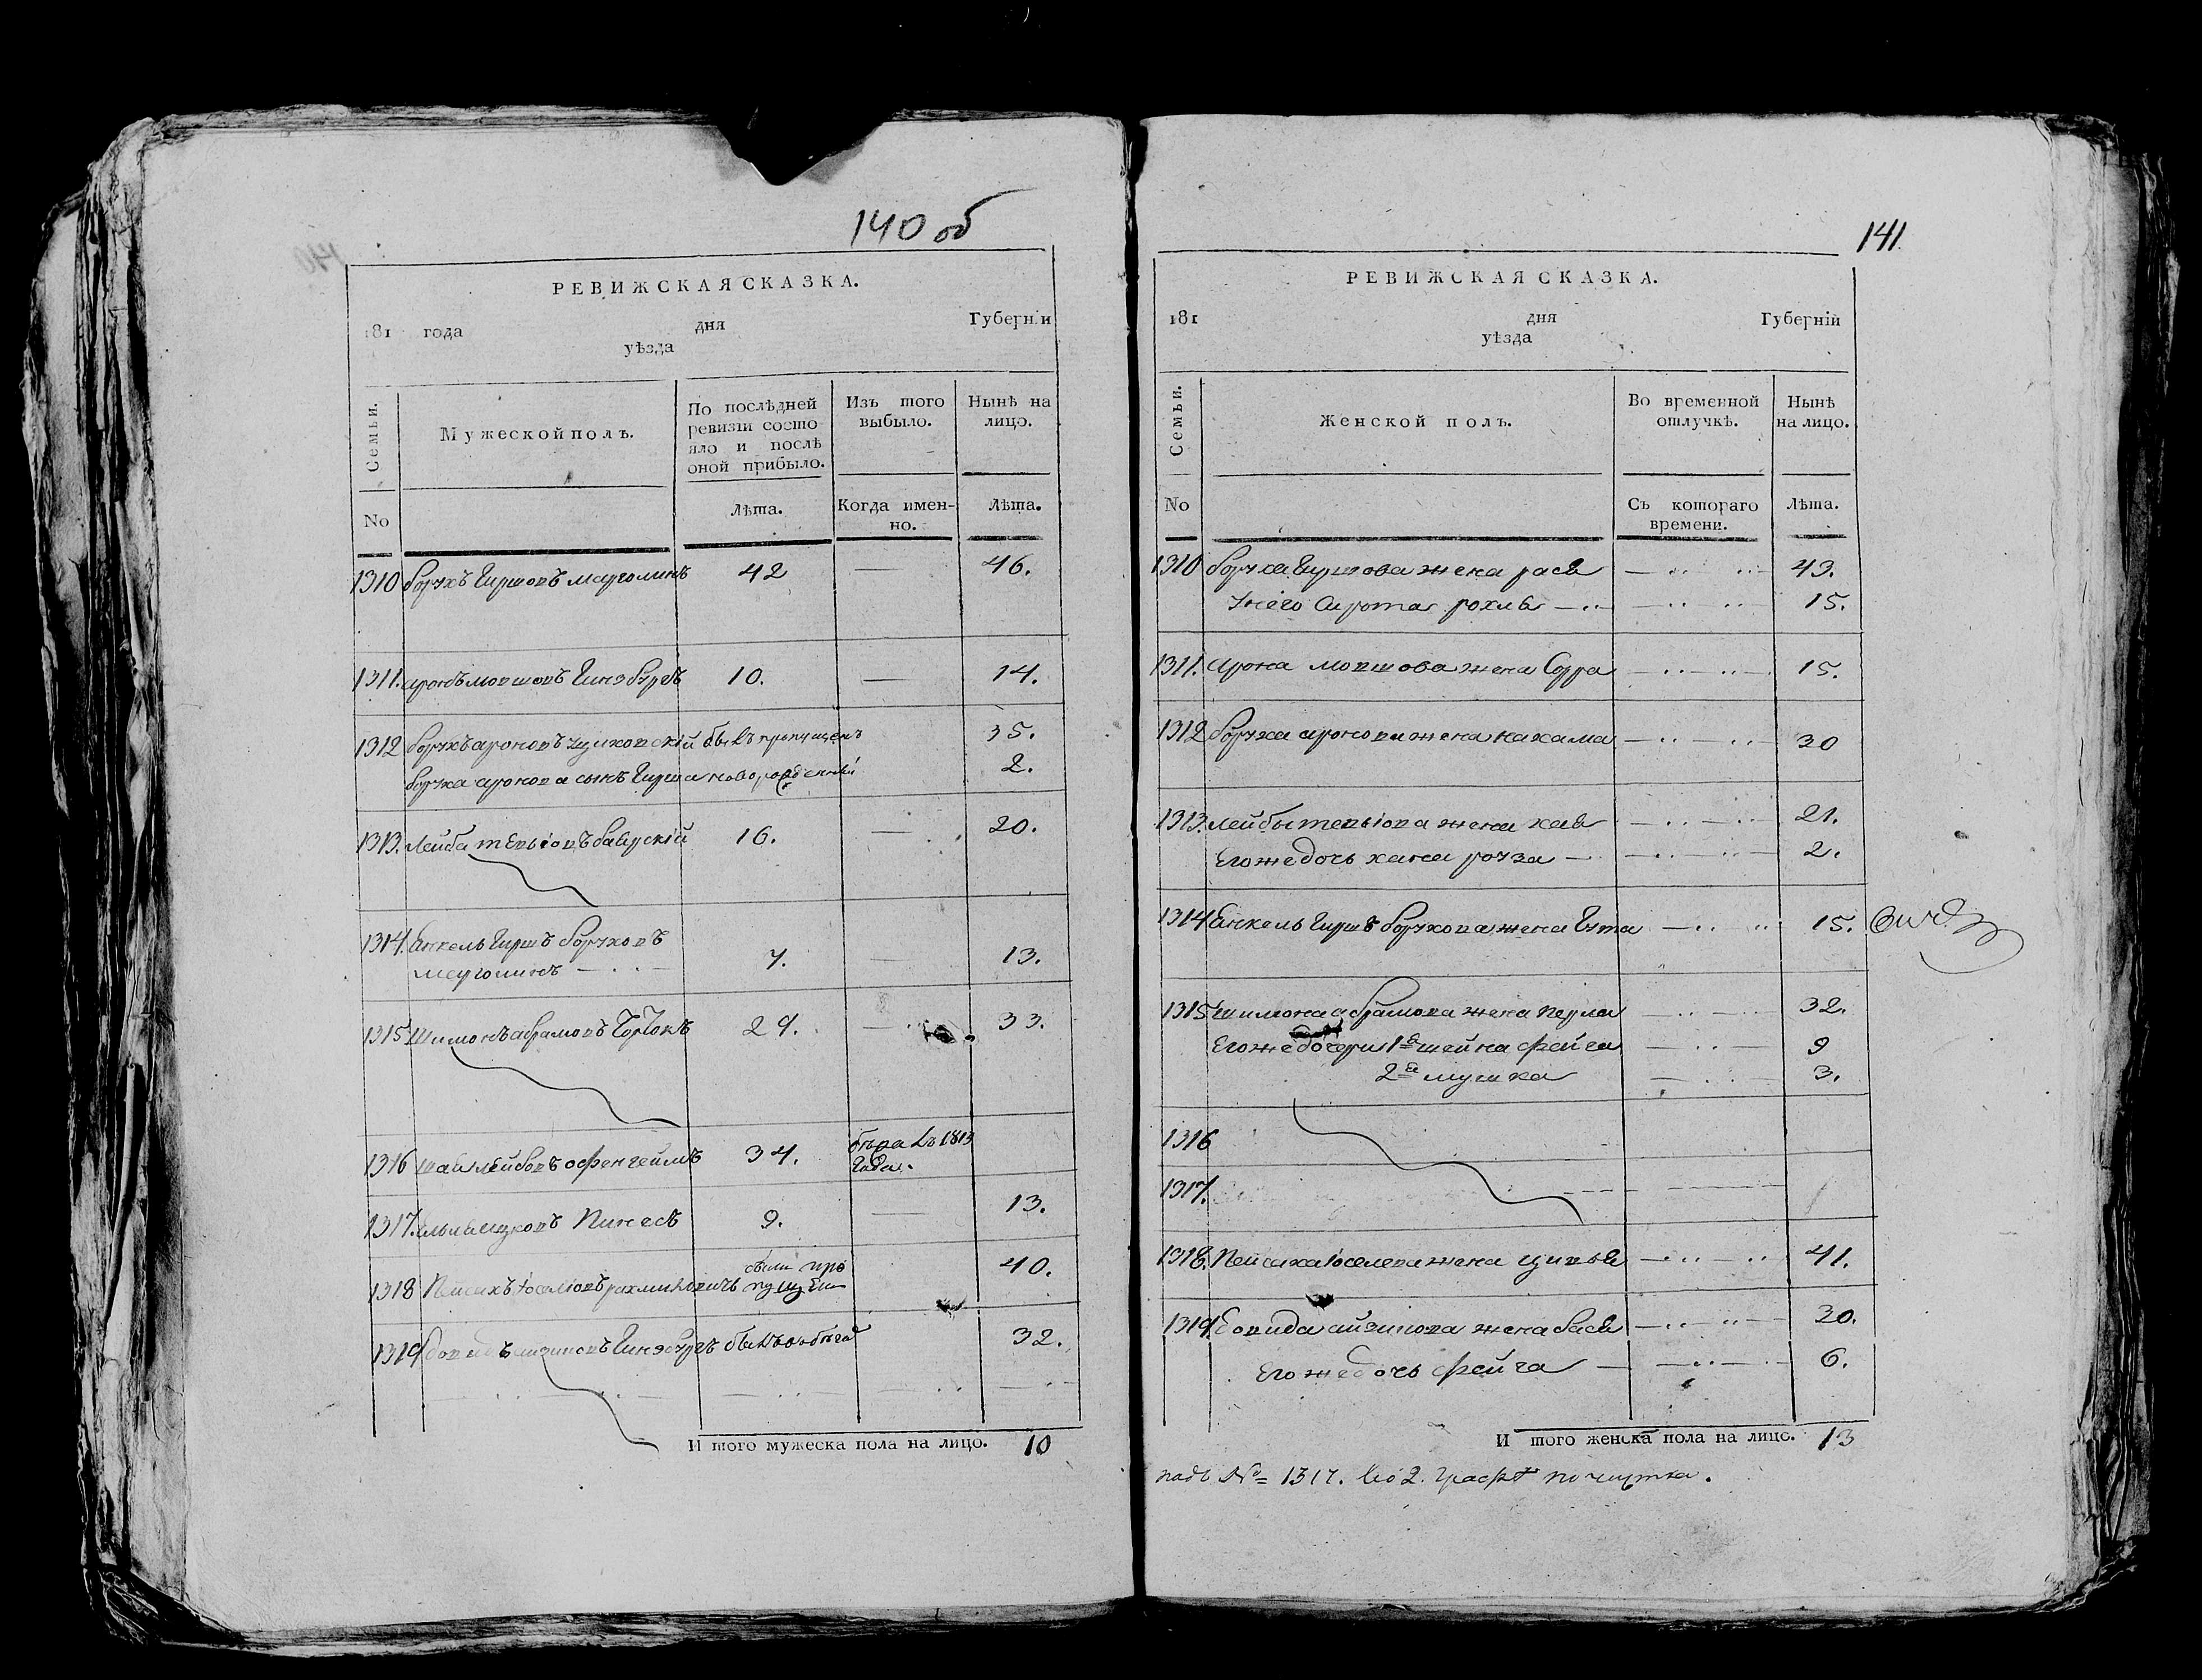 140 об
РЕВИЖСКАЯ СКАЗКА.
181 года дня Губерніи
уѣзда
Семьи.
Мужеской полъ.
По послѣдней ревизіи состояло и послѣ оной прибыло.
Изъ того выбыло.
Нынѣ на лицо.
No
Лѣта.
Когда именно.
Лѣта.
1310 Борухъ Гиршовъ Марголинъ 42 — 46.
1311. Аронъ Мовшовъ Гинзбургъ 10. — 14.
1312 Борухъ Ароновъ былъ пропущенъ 35.
Боруха Аронова сынъ Гирша новорожденный 2.
1313. Лейба 16. — 20.
1314. Янкель Гиршъ Боруховъ
Марголинъ — 7. — 13.
1315 Шимонъ Абрамовъ Гордонъ 29. — 33.
1316 Шая Лейбовъ Офенгеймъ 34. въ 1813
года.
1317. Ицковъ Пинесъ 9. — 13.
1318 Пейсахъ Іоселіовъ Рахмиловичъ были про
пущен 40.
1319 Довидъ Айзиковъ Гинзбургъ былъ въ 32.
И того мужеска пола на лицо. 10
141.
РЕВИЖСКАЯ СКАЗКА.
181 дня Губерній
уѣзда
Семьи.
Женской полъ.
Во временной отлучкѣ.
Нынѣ на лицо.
No
Съ котораго времени.
Лѣта.
1310 Боруха Гиршова жена Рася 43.
У него сирота Рохля 15.
1311. Арона Мовшова жена Сора 15.
1312 Боруха Аронова жена Нахама 30
1313. Лейбы жена Хая 21.
Его же дочь Хана 2.
1314 Янкель Гирша Борухова жена Гита 15.
1315 Шимона Абрамова жена Перла 32.
Его же дочери 1я Шейна Фейга 9
2я Мушка 3.
1316
1317.
1318. Пейсаха Іоселева жена Ципья 41.
1319. Довида Айзикова жена Бася 30.
Его же дочь Фейга 6.
И того женска пола на лицо. 13
надъ No 1317. во 2. графѣ почищтка.